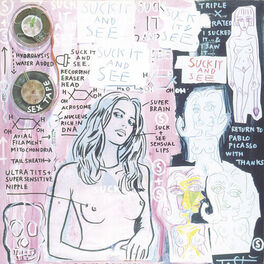 SUCK IT
AND
SEE
TRIPLE
X
RATED
I SUCKED
IT &
I SAW
IT
SUCK IT
AND
SEE
HYDROLYSIS
WATER ADDED
SUCK IT
AND
SEE.
RECORDING
ERASER
HEAD
SUCK IT
AND
SEE
SUCK IT
AND
SEE
SEX TYPE
HO
H
OH
ACROSOME
NUCLEUS
RICH IN
DNA
SUPER
BRAIN
SUCK
+
SEE
SENSUAL
LIPS
AXIAL
FILAMENT
MITOCHONDRIA
TAIL SHEATH
ULTRA TITS +
SUPER SENSITIVE
NIPPLE
RETURN TO
PABLO
PICASSO
WITH
THANKS
S